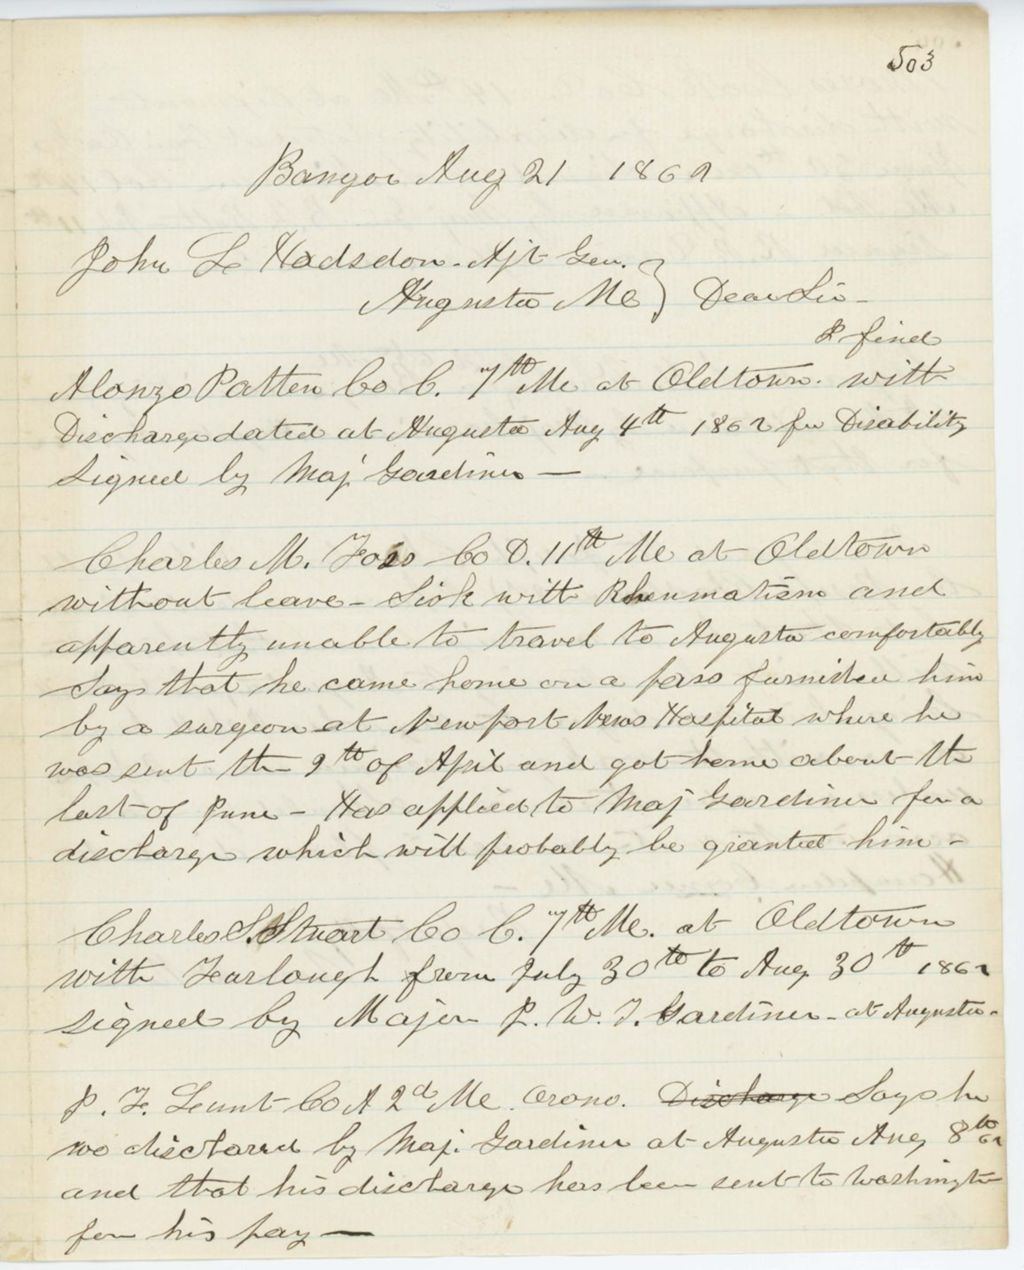 503
Bangor Aug 21 1862
John L Hodsdon - Ajt Gen.
Augusta Me } Dear Sir -
I find
Alonzo Patten Co C. 7th Me at Oldtown. with
Discharge dated at Augusta Aug 4th 1862 for Disability
signed by Maj Gardiner —
Charles M. Foss Co D. 11th Me at Oldtown
without leave - Sick with Rheumatism and
apparently unable to travel to Augusta comfortably
Says that he came home on a pass furnished him
by a surgeon at Newport News Hospital where he
was sent the 9th of April and got home about the
last of June - Has applied to Maj Gardiner for a
discharge which will probably be granted him -
Charles S. Stuart Co C. 7th Me. at Oldtown
with Fearlough from July 30th to Aug 30th 1862
signed by Major J. W. T. Gardiner - at Augusta -
J. F. Lunt Co A 2d Me. Orono. Discharge Says he
wo discharged by Maj. Gardiner at Augusta Aug 8th 62
and that his discharge has been sent to Washington
for his pay —